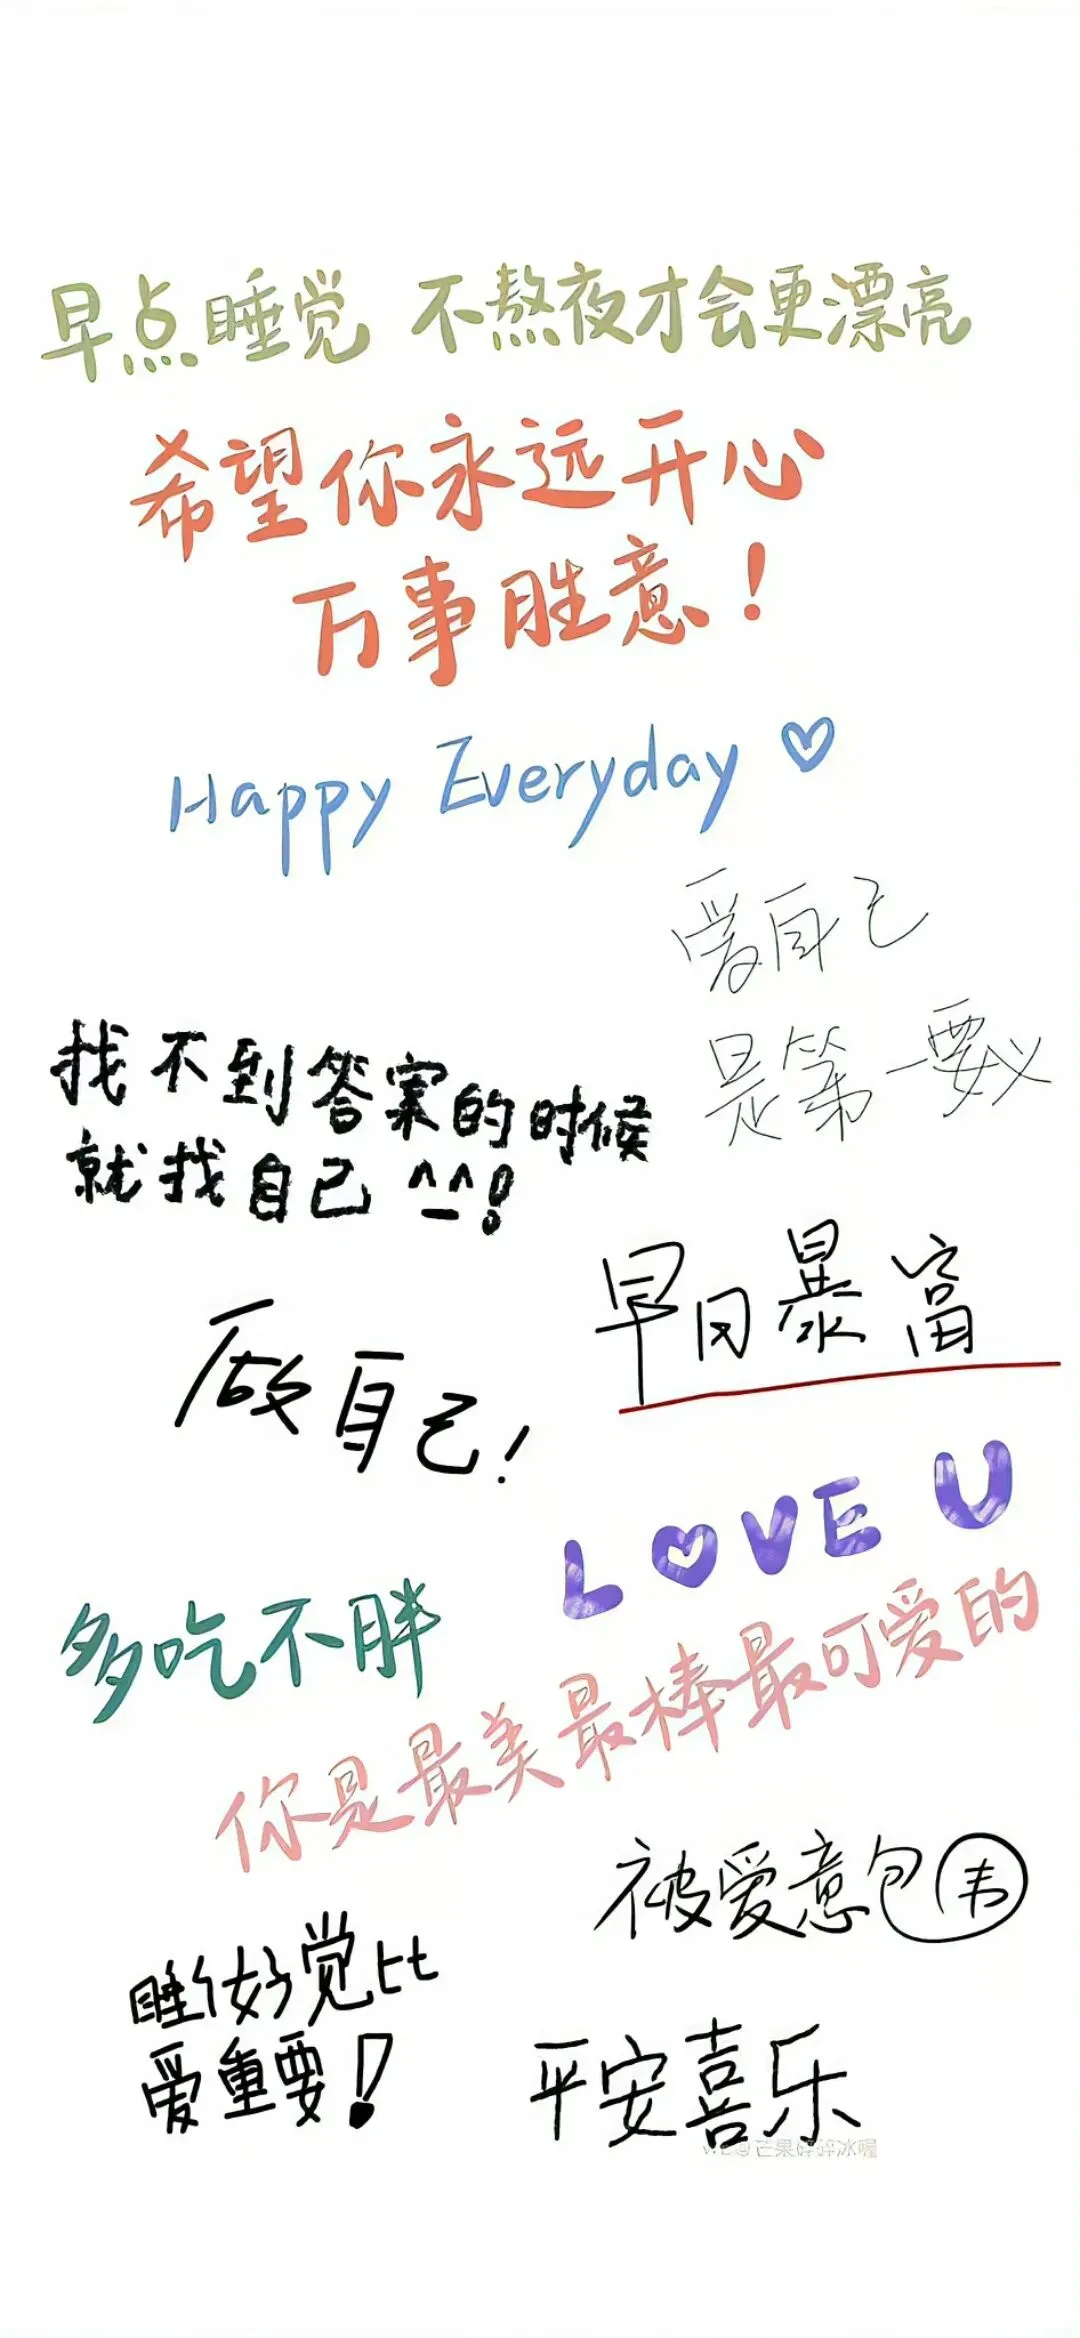 早点睡觉 不熬夜才会更漂亮
希望你永远开心
万事胜意！
Happy Everyday ♡
爱自己
是第一要义
找不到答案的时候
就找自己 ^_^!
做自己！
早日暴富
LOVE U
多吃不胖
你是最美最棒最可爱的
被爱意包韦
睡好觉比
爱重要！
平安喜乐